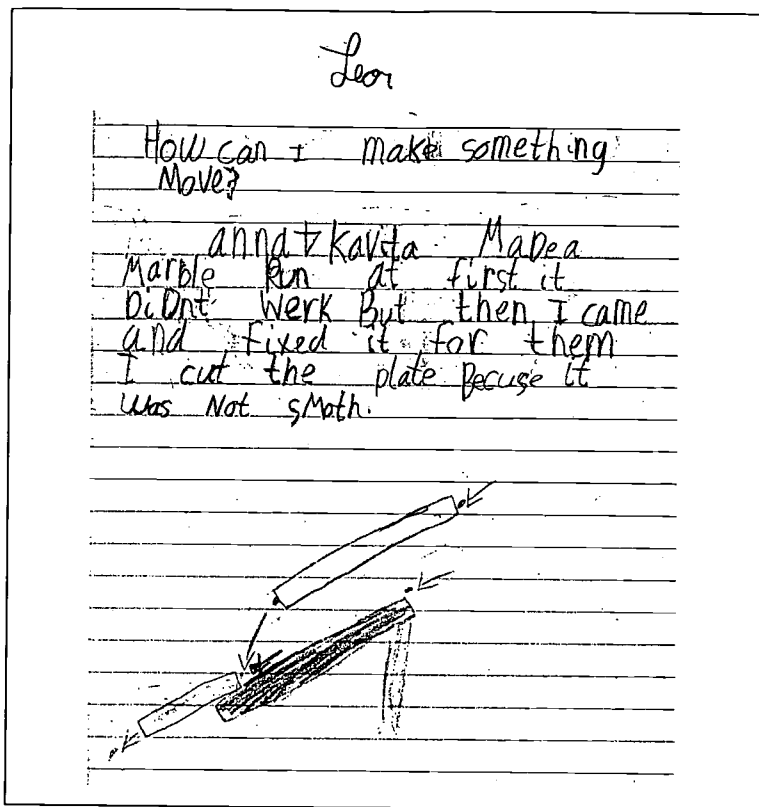 Leor
How can I make something
Move?
anna + Kavita MaDea
Marble Run at first it
DiDnt Werk But then I came
and Fixed it for them
I cut the plate Becuse it
was Not sMoth.